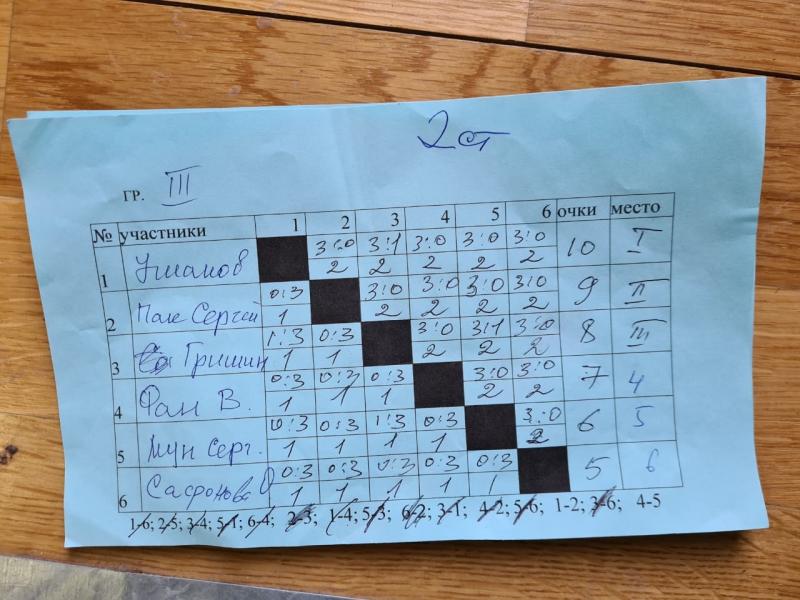 2 ст
ГР. III
№ участники 1 2 3 4 5 6 очки место
1 Усманов 3:0 3:1 3:0 3:0 3:0 10 I
2 2 2 2 2
2 Пак Сергей 0:3 3:0 3:0 3:0 3:0 9 II
1 2 2 2 2
3 Гришин 1:3 0:3 3:0 3:1 3:0 8 III
1 1 2 2 2
4 Фан В. 0:3 0:3 0:3 3:0 3:0 7 4
1 1 1 2 2
5 Мун Серг. 0:3 0:3 1:3 0:3 3:0 6 5
1 1 1 1 2
6 Сафонова О 0:3 0:3 0:3 0:3 0:3 5 6
1 1 1 1 1
1-6; 2-5; 3-4; 5-1; 6-4; 2-3; 1-4; 5-3; 6-2; 3-1; 4-2; 5-6; 1-2; 3-6; 4-5